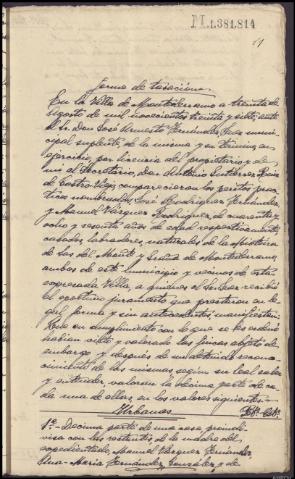 M.1.381.814
61
forma de tasación.
En la Villa de Monterramo a treinta de
Agosto de mil novecientos treinta y siete, ante
el Sr. Don José Armesto Fernández, Juez muni-
cipal suplente, de la misma y su término en
ejercicio, por licencia del propietario y de
mi el Secretario, Don Antonio Gutiérrez
de Castro Vega, comparecieron los peritos prác-
ticos nombrados, José Rodríguez Fernández
y Manuel Vázquez Rodríguez, de cuarenta y
ocho y sesenta años de edad respectivamente,
casados, labradores, naturales de
de Monterramo,
ambos de este municipio y vecinos de esta
expresada Villa, a quienes el Sr. Juez recibió
el oportuno juramento que prestaron en le-
gal forma y sin antecedentes manifestaron:
Que en cumplimiento con lo que se les ordenó
habían visto y valorado las fincas objeto de
embargo y después de un detenido recono-
cimiento de las mismas según su leal saber
y entender, valoran la décima parte de ca-
da una de ellas, en los valores siguientes:
Urbanas
1º- Décima parte de una casa proindi-
visa con los restantes de la madre del
expedientado, Manuel Vázquez Fernández,
Ana-María Fernández González y de